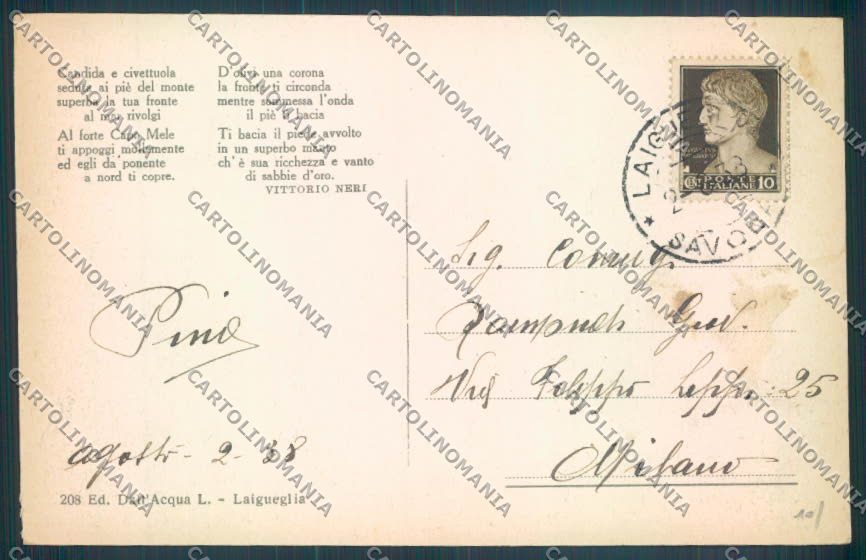 Candida e civettuola
seduta ai piè del monte
superba la tua fronte
al mar rivolgi
Al forte Capo Mele
ti appoggi mollemente
ed egli da ponente
a nord ti copre.
D'olivi una corona
la fronte ti circonda
mentre sommessa l'onda
il piè ti bacia
Ti bacia il piede avvolto
in un superbo manto
ch'è sua ricchezza e vanto
di sabbie d'oro.
VITTORIO NERI
CENT. POSTE ITALIANE 10
LAIGUEGLIA
SAVONA
Sig. Coniug.
Giov.
Via Filippo Lippi 25
Milano
Pino
agosto - 2 - 38
208 Ed. Dall'Acqua L. - Laigueglia
10/
CARTOLINOMANIA